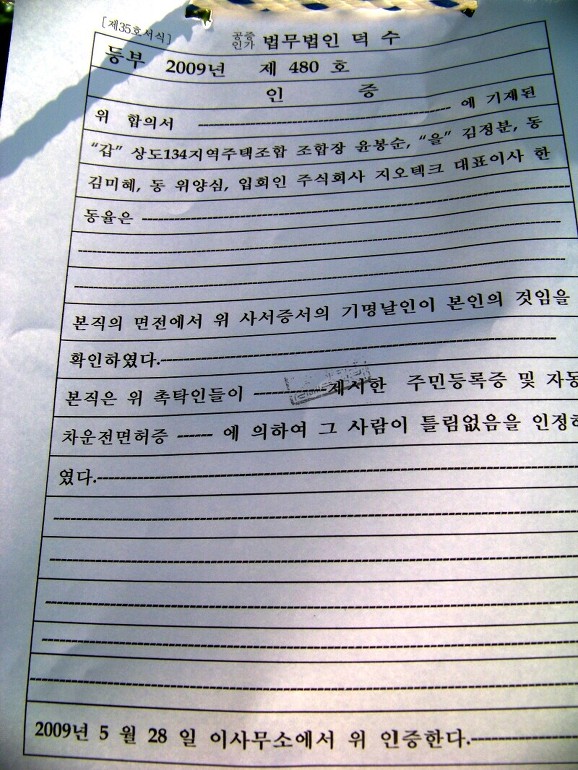 [제35호서식]
공증인가 법무법인 덕 수
등부 2009년 제 480 호
인 증
위 합의서 에 기재된
“갑” 상도134지역주택조합 조합장 윤봉순, “을” 김정분, 동
김미혜, 동 위양심, 입회인 주식회사 지오텍크 대표이사 한
동율은
본직의 면전에서 위 사서증서의 기명날인이 본인의 것임을
확인하였다.
본직은 위 촉탁인들이 제시한 주민등록증 및 자동
차운전면허증 에 의하여 그 사람이 틀림없음을 인정하
였다.
2009년 5 월 28 일 이사무소에서 위 인증한다.